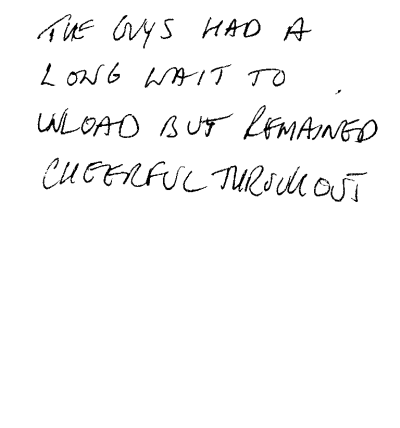 THE GUYS HAD A
LONG WAIT TO
UNLOAD BUT REMAINED
CHEERFUL THROUGHOUT